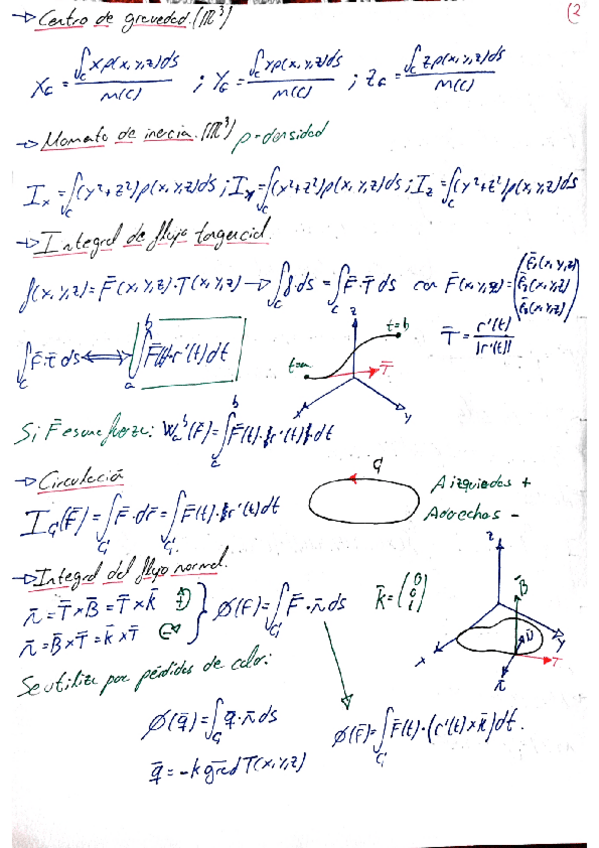 (2
→ Centro de gravedad. (ℝ³)
X_G = ∫_C xρ(x,y,z)ds / m(C) ; Y_G = ∫_C yρ(x,y,z)ds / m(C) ; Z_G = ∫_C zρ(x,y,z)ds / m(C)
→ Momento de inercia. (ℝ³) ρ-densidad
I_x = ∫_C (y²+z²)ρ(x,y,z)ds ; I_y = ∫_C (x²+z²)ρ(x,y,z)ds ; I_z = ∫_C (y²+z²)ρ(x,y,z)ds
→ Integral de flujo tangencial.
f(x,y,z) = F̄(x,y,z)·T(x,y,z) → ∫_C f·ds = ∫_C F̄·T̄ ds con F̄(x,y,z) = (F̄₁(x,y,z) F̄₂(x,y,z) F̄₃(x,y,z))
∫_C F̄·T̄ ds ⟺ ∫_a^b F̄(t)·r'(t)dt
T̄ = r'(t) / |r'(t)|
z t=b t=a T̄ x y
Si F̄ es una fuerza: W_a^b(F̄) = ∫_a^b F̄(t)·r'(t)·dt
→ Circulación
I_{C₁}(F̄) = ∫_{C₁} F̄·dr̄ = ∫_{C₁} F̄(t)·r'(t)dt
C₁ A izquierdas +
A derechas -
→ Integral del flujo normal.
n̄ = T̄×B̄ = T̄×k̄
n̄ = B̄×T̄ = k̄×T̄
Φ(F) = ∫_{C₁} F̄·n̄ ds k̄ = (0 0 1)
z B̄ x y T n̄
Se utiliza por pérdidas de calor:
Φ(q̄) = ∫_{C₁} q̄·n̄ ds
Φ(F̄) = ∫_{C₁} F̄(t)·(r'(t)×k̄)dt.
q̄ = -k grad T(x,y,z)